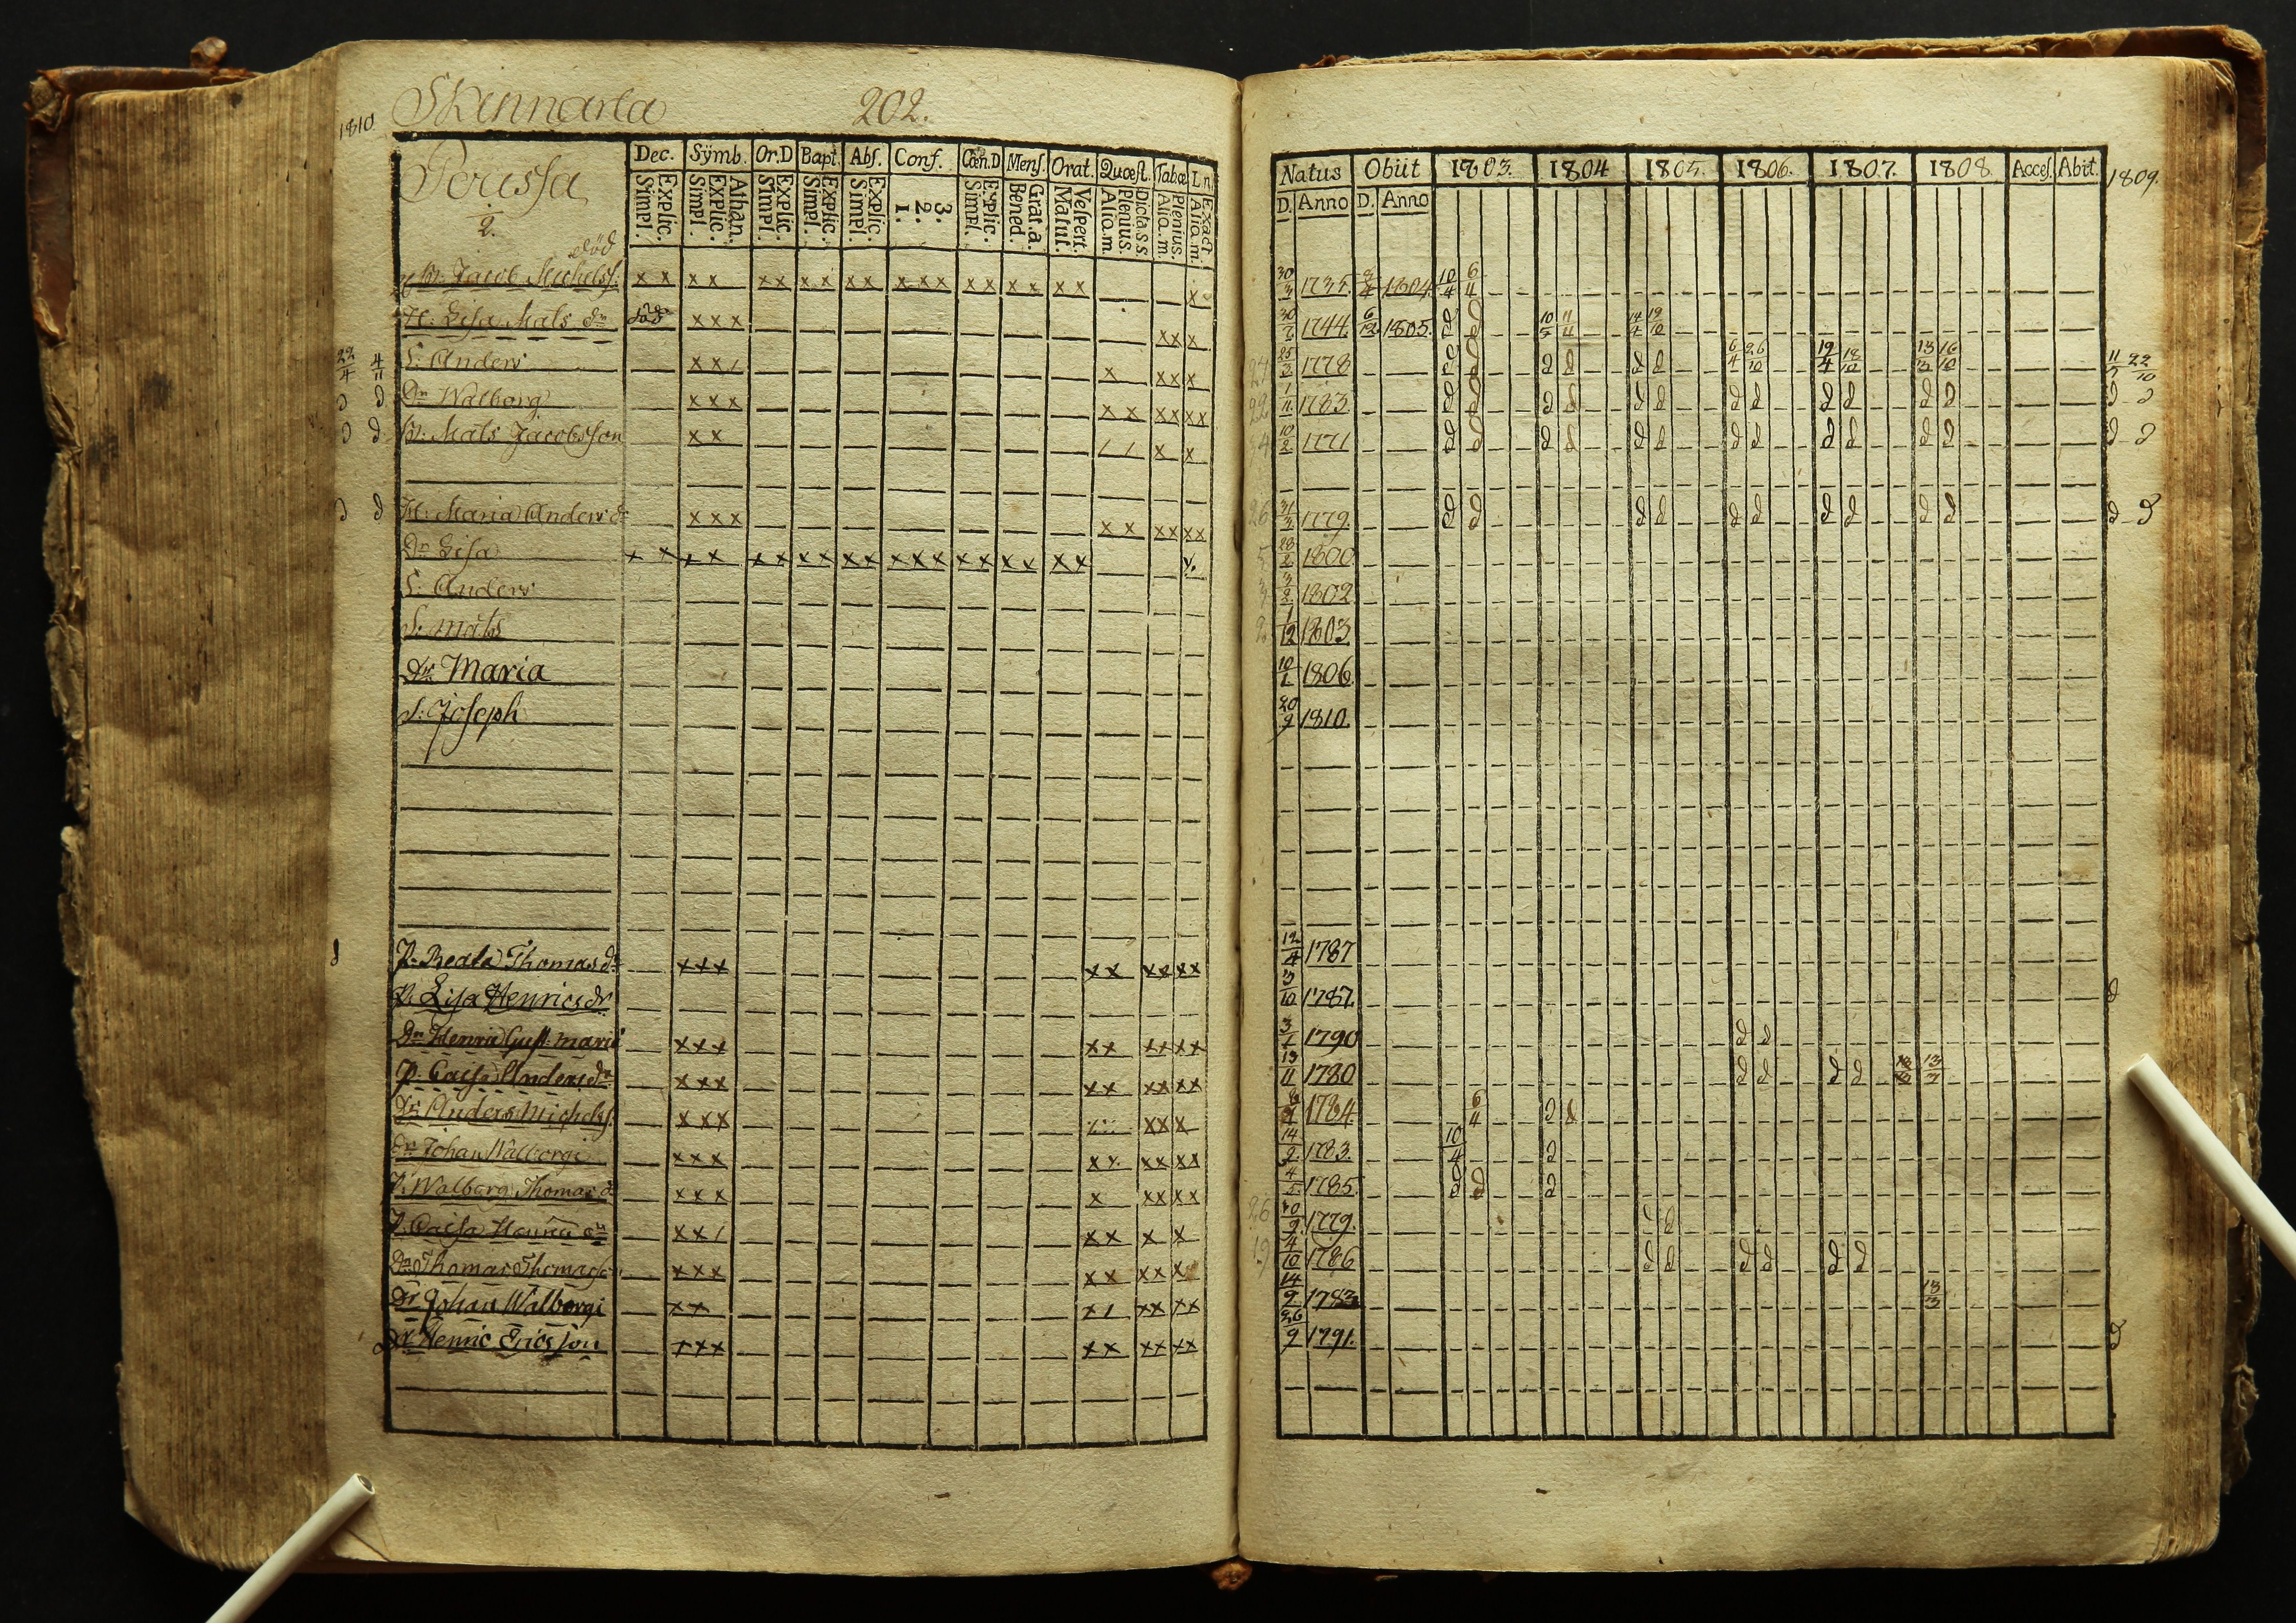 1810 Skinnarla 202.
Perussa
2.
Dec. Symb. Or.D Bapt. Abs. Conf. Cœn.D Mens. Orat. Quœst. Tabœ Ln.
Explic. Simpl. Athan. Explic. Simpl. Explic. Simpl. Explic. Simpl. Explic. Simpl. 3. 2. 1. Explic. Simpl. Grat.a. Bened. Vespert. Matut. Dicta.s.s. Plenius. Aliq.m. Plenius. Aliq.m. Exact. Aliq.m.
död
B. Jacob Michelss. x x x x x x x x x x x x x x x x x x x x x
H: Lisa Mats dr död x x x x x x
22/4 4/11 S: Anders x x / x x x x
d d Dr Walborg x x x x x x x x x
d d B: Mats Jacobsson x x / / x x
d d H: Maria Anders dr x x x x x x x x x
Dr Lisa x x x x x x x x x x x x x x x x x x x x x
S: Anders
S: Mats
Dr Maria
S: Joseph
P. Beata Thomas dr x x x x x x x x x
P. Lisa Henrics dr
x x x x x x x x x
P. Caisa Anders dr x x x x x x x x x
Dr Anders Michelss. x x x x x x
Dr Johan Walborgi x x x x x x x x x
P. Walborg Thomas d x x x x x x x x
P. Caisa x x / x x x x
Dr Thomas Thomass x x x x x x x x
Dr Johan Walborgi x x x / x x x x
Dr Henric Ericsson x x x x x x x x x
Natus Obiit 1803. 1804 1805. 1806. 1807. 1808. Acces. Abit. 1809.
D. Anno D. Anno
30/3 1735. 8/4 1804. 10/4 6/11
1744. 6/12 1805. d d 10/5 11/11 14/4 19/10
25/3 1778 d d d d d d 6/4 26/10 19/4 18/10 13/3 16/10 22/10
22 1/11 1783. d d d d d d d d d d d d d d
10/2 1771 d d d d d d d d d d d d d d
26 1779. d d d d d d d d d d d d
5 28/2 1800
3 3/2 1802
2 1/12 1803
10/1 1806.
20/9 1810.
12/4 1787
3/10 1787. d
3/1 1790 d d
13/11 1780 d d d d 13/3
1784 6/11 d d
14/2 1783. 10/4 d
4/5 1785. d d d
26 10/9 1779. d d
19 4/10 1786 d d d d d d
14/2 1783 13/3
26/9 1791. d